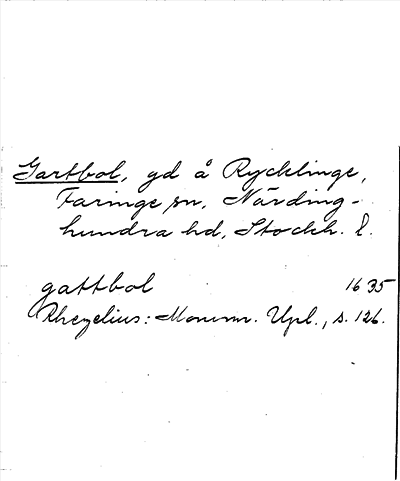 Gartbol, gd å Rycklinge,
Faringe sn, Närding-
hundra hd, Stockh. l.
gattbol 1635
Rhezelius: Monum. Upl., s. 126.